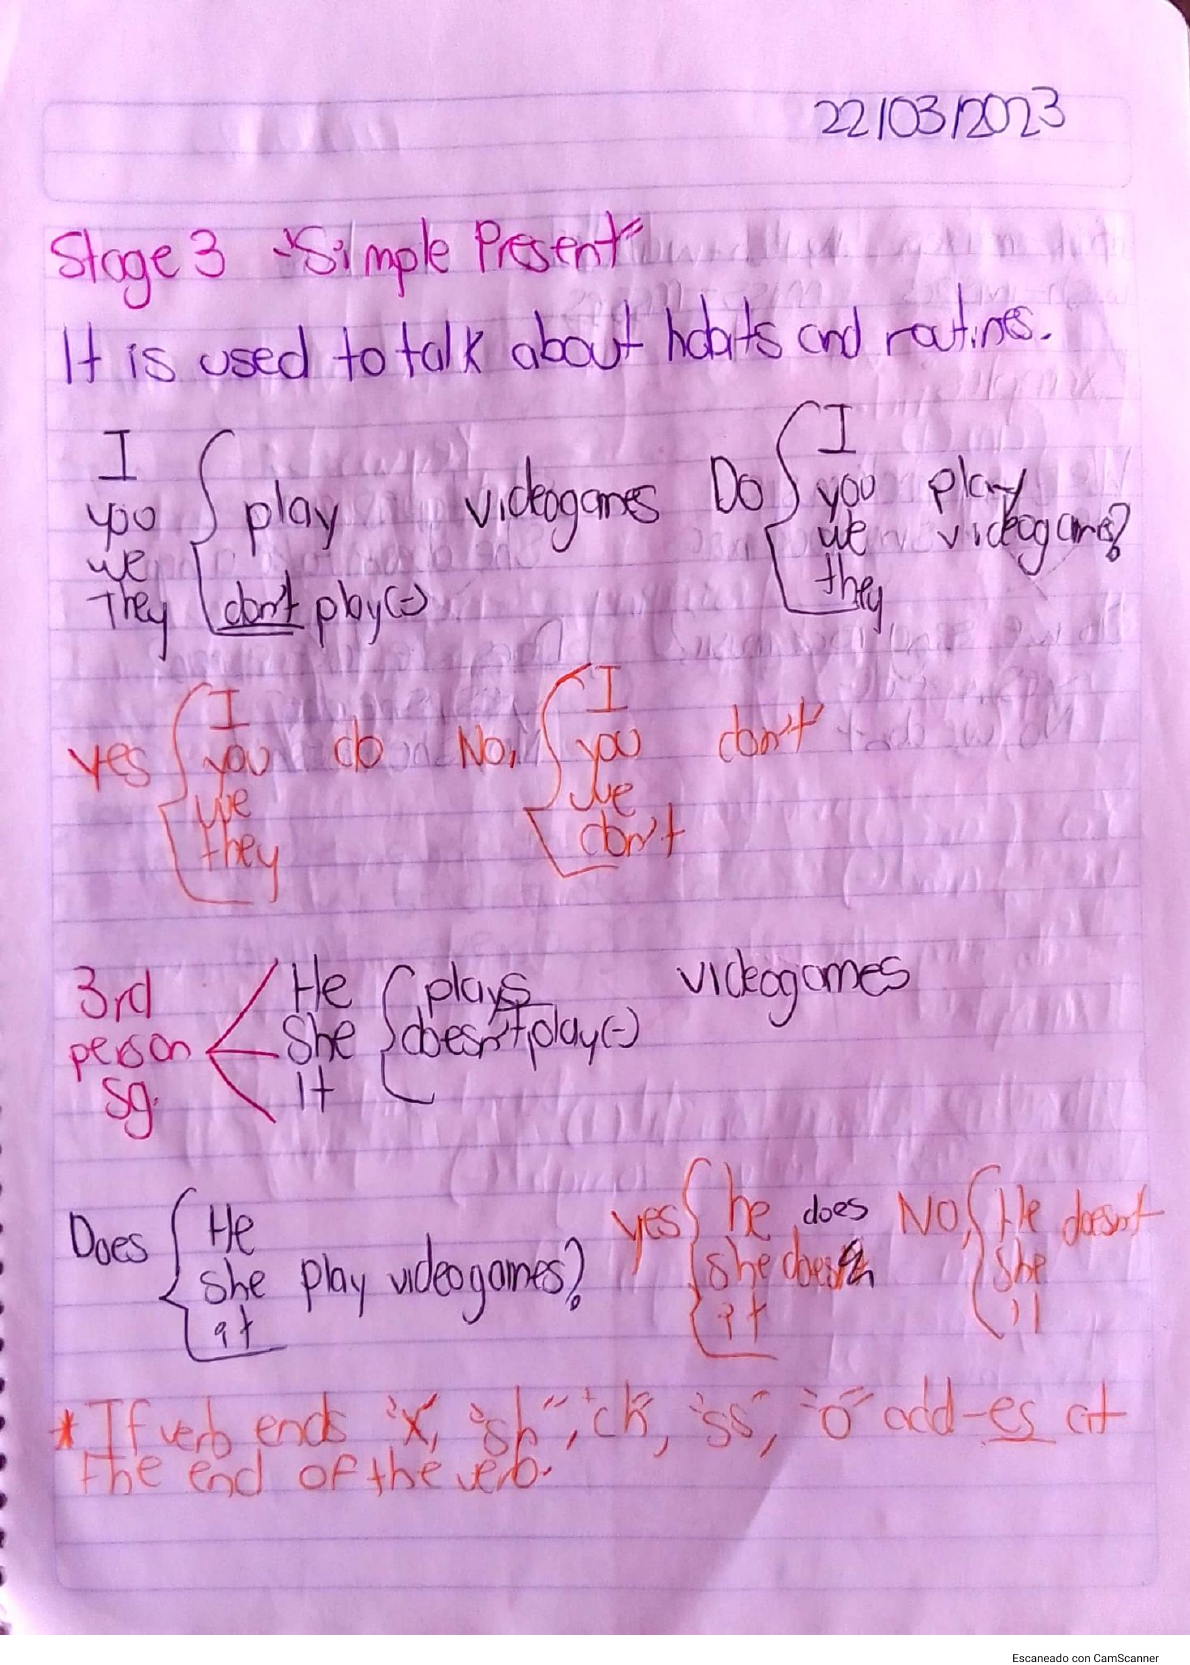 22/03/2023
Stage 3 "Simple Present"
It is used to talk about habits and routines.
I
you
we
They
play
don't play(-)
videogames
Do
I
you
we
they
play
videogames?
yes
I
you
we
they
do
No,
I
you
we
don't
don't
3rd
person
sg.
He
She
It
plays
doesn't play(-)
videogames
Does
He
She
it
play videogames?
yes
he does
she does
it
NO,
He doesn't
She
it
* If verb ends "x", "sh", "ch", "ss", "o" add -es at
the end of the verb.
Escaneado con CamScanner